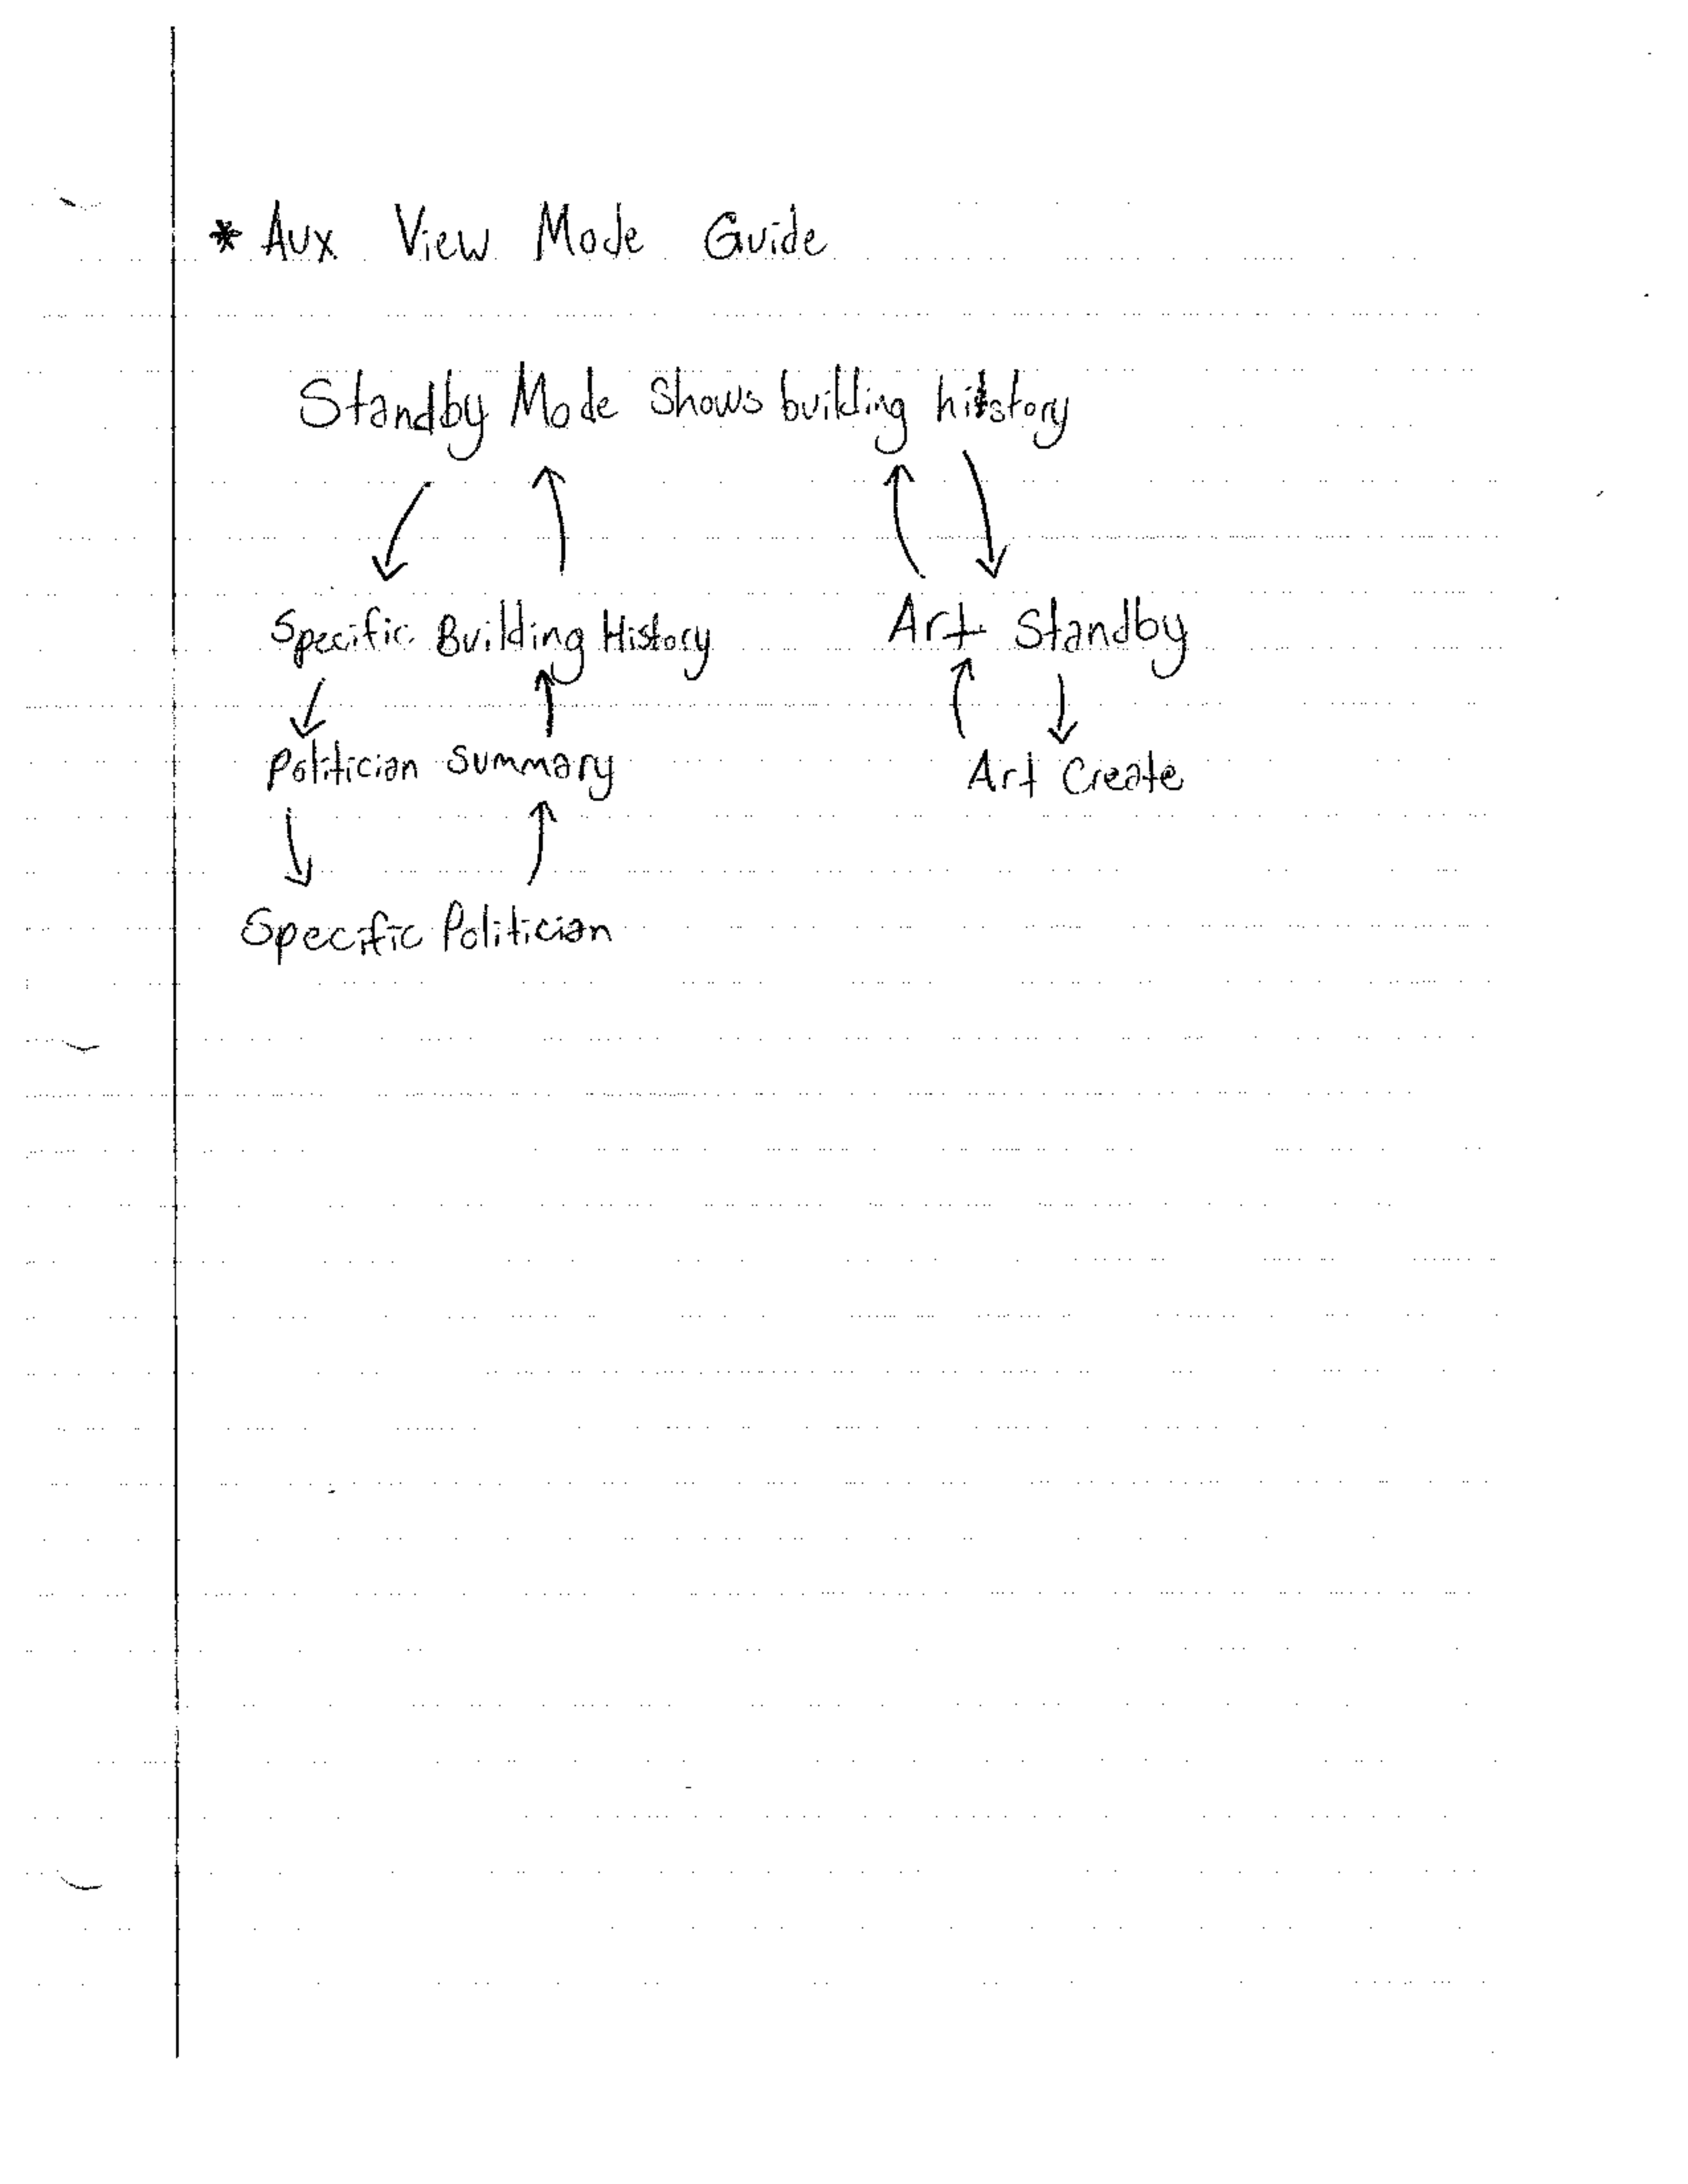 * Aux View Mode Guide
Standby Mode Shows building hitstory
Specific Building History Art Standby
Politician Summary Art Create
Specific Politician